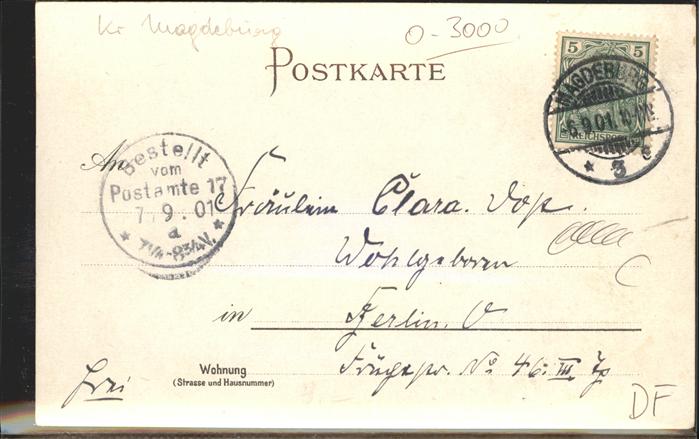 Kr Magdeburg
0-3000
POSTKARTE
5 5
REICHSPOST
MAGDEBURG
6.9.01.
* 3 c
An
Bestellt
vom
Postamte 17
7.9.01
a
* 7¼-8¾V. *
Fräulein Clara
Wohlgeboren
in Berlin. O
Wohnung
(Strasse und Hausnummer)
No 46 III
frei
DF